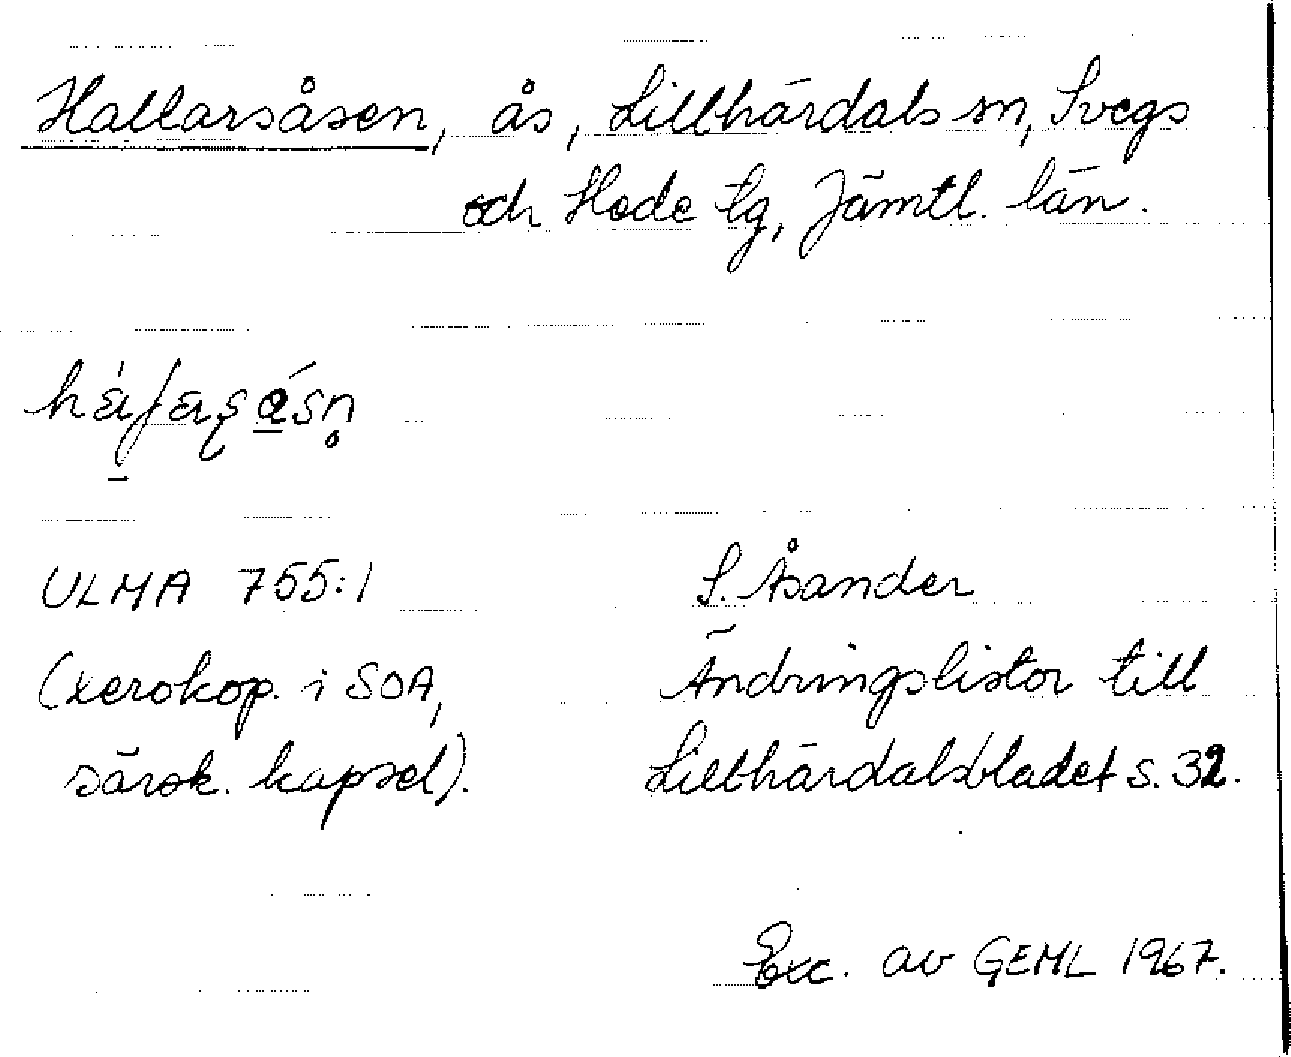 Hallarsåsen, ås, Lillhärdals sn, Svegs
och Hede tg, Jämtl. län.
ULMA 755:1
S. Åsander
(xerokop. i SOA,
Ändringslistor till
särsk. kapsel).
Lillhärdalsbladet s. 32.
Exc. av GEML 1967.